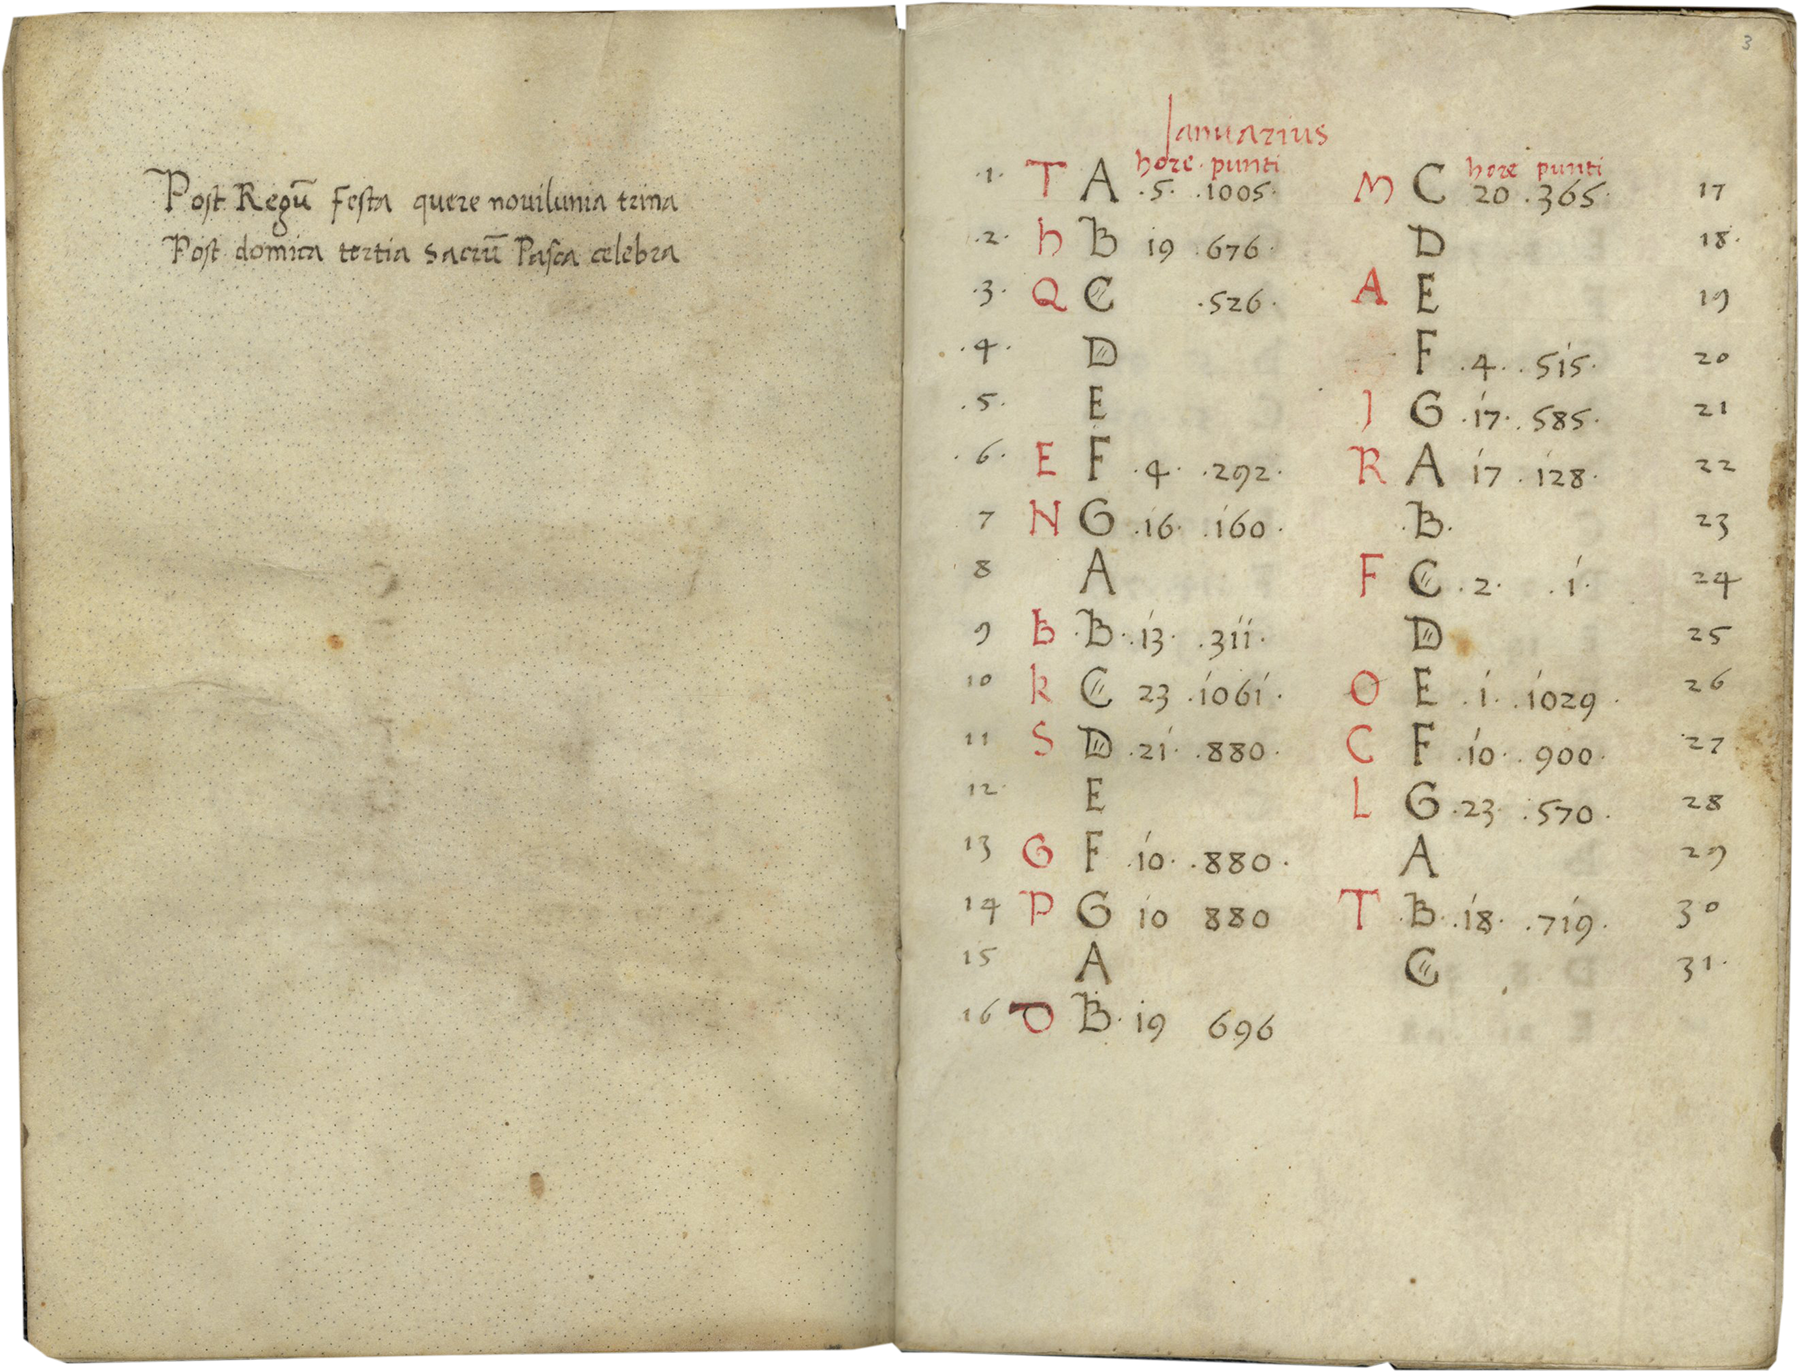 Post Regū festa quere novilunia trina
Post domica tertia sacrū Pasca celebra
3
Ianuarius
hore · punti hore punti
·1· T A ·5· ·1005· M C 20 ·365· 17
·2· h B 19 ·676· D 18·
·3· Q C ·526· A E 19
·4· D F ·4· ·515· 20
·5· E I G ·17· ·585· 21
·6· E F ·4· ·292· R A 17 ·128· 22
7 N G ·16· ·160· ·B· 23
8 A F C ·2· ·1· 24
9 B ·B· ·13· ·311· D 25
10 k C 23 ·1061· O E ·1· ·1029· 26
11 S D ·21· ·880· C F ·10· ·900· 27
12 E L G ·23· ·570· 28
13 G F ·10· ·880· A 29
14 P G 10 880 T ·B· ·18· ·719· 30
15 A C 31·
16 D B· 19 696